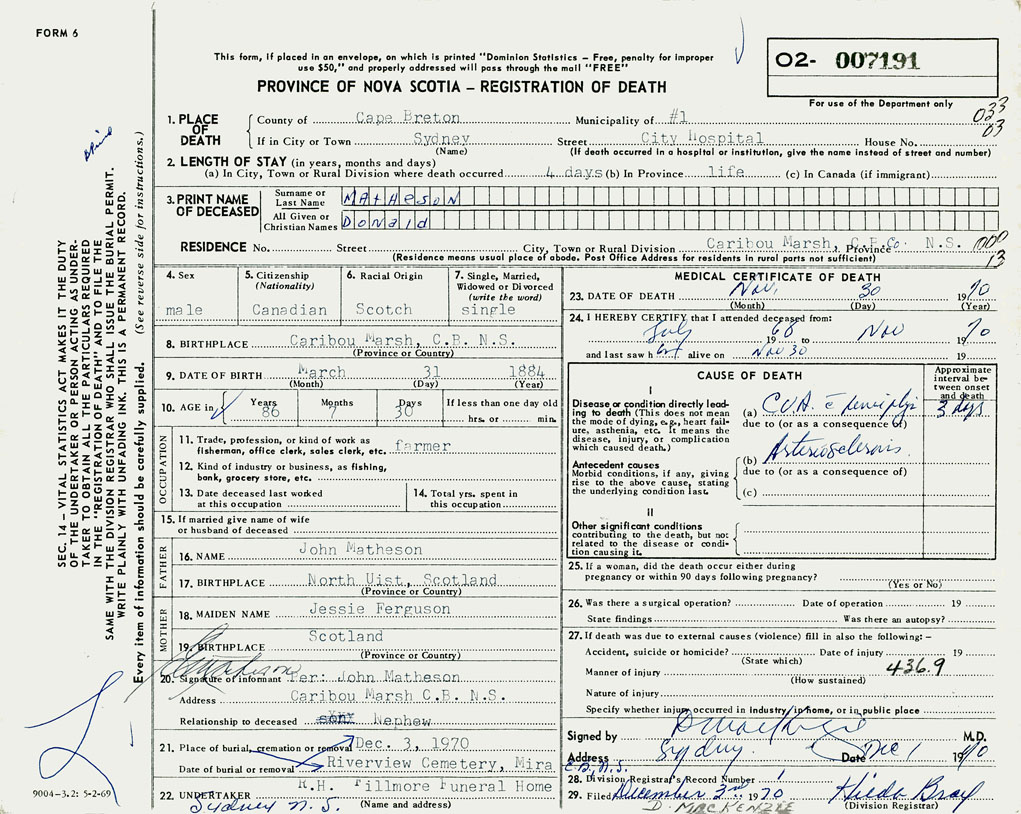 FORM 6
This form, if placed in an envelope, on which is printed "Dominion Statistics – Free, penalty for improper
use $50," and properly addressed will pass through the mail "FREE"
PROVINCE OF NOVA SCOTIA – REGISTRATION OF DEATH
02- 007191
For use of the Department only
1. PLACE OF DEATH
County of Cape Breton Municipality of #1
033
03
If in City or Town Sydney Street City Hospital House No.
(Name) (If death occurred in a hospital or institution, give the name instead of street and number)
2. LENGTH OF STAY (in years, months and days)
(a) In City, Town or Rural Division where death occurred 4 days (b) In Province life (c) In Canada (if immigrant)
3. PRINT NAME OF DECEASED
Surname or Last Name MATHESON
All Given or Christian Names DONALD
RESIDENCE No. Street City, Town or Rural Division Caribou Marsh, C.B. Co. Province N.S.
(Residence means usual place of abode. Post Office Address for residents in rural parts not sufficient)
000
13
4. Sex
male
5. Citizenship
(Nationality)
Canadian
6. Racial Origin
Scotch
7. Single, Married,
Widowed or Divorced
(write the word)
single
8. BIRTHPLACE Caribou Marsh, C.B. N.S.
(Province or Country)
9. DATE OF BIRTH March 31 1884
(Month) (Day) (Year)
10. AGE in Years 86 Months 7 Days 30 If less than one day old
hrs. or min.
OCCUPATION
11. Trade, profession, or kind of work as
fisherman, office clerk, sales clerk, etc. farmer
12. Kind of industry or business, as fishing,
bank, grocery store, etc.
13. Date deceased last worked
at this occupation
14. Total yrs. spent in
this occupation
15. If married give name of wife
or husband of deceased
FATHER
16. NAME John Matheson
17. BIRTHPLACE North Uist, Scotland
(Province or Country)
MOTHER
18. MAIDEN NAME Jessie Ferguson
19. BIRTHPLACE Scotland
(Province or Country)
20. Signature of informant Per: John Matheson
Address Caribou Marsh C.B. N.S.
Relationship to deceased Nephew
21. Place of burial, cremation or removal Dec. 3, 1970
Date of burial or removal Riverview Cemetery, Mira
22. UNDERTAKER R.H. Fillmore Funeral Home
Sydney N.S. (Name and address)
MEDICAL CERTIFICATE OF DEATH
23. DATE OF DEATH Nov. 30 1970
(Month) (Day) (Year)
24. I HEREBY CERTIFY that I attended deceased from:
July 1968 to Nov 1970
and last saw h alive on Nov 30 19
CAUSE OF DEATH
Approximate
interval be-
tween onset
and death
I
Disease or condition directly lead-
ing to death (This does not mean
the mode of dying, e.g., heart fail-
ure, asthenia, etc. It means the
disease, injury, or complication
which caused death.)
(a) C.V.A. c̄ hemiplegia 3 days
due to (or as a consequence of)
Antecedent causes
Morbid conditions, if any, giving
rise to the above cause, stating
the underlying condition last.
(b) Arteriosclerosis
due to (or as a consequence of)
(c)
II
Other significant conditions
contributing to the death, but not
related to the disease or condi-
tion causing it.
25. If a woman, did the death occur either during
pregnancy or within 90 days following pregnancy?
(Yes or No)
26. Was there a surgical operation? Date of operation 19
State findings Was there an autopsy?
27. If death was due to external causes (violence) fill in also the following: –
Accident, suicide or homicide? Date of injury 19
(State which)
Manner of injury 436.9
(How sustained)
Nature of injury
Specify whether injury occurred in industry, in home, or in public place
Signed by M.D.
Address Sydney. Date Dec 1 1970
C.B., N.S.
28. Division Registrar's Record Number 1
29. Filed December 3rd 1970 Hilda Bray
D. MACKENZIE (Division Registrar)
SEC. 14 – VITAL STATISTICS ACT MAKES IT THE DUTY
OF THE UNDERTAKER OR PERSON ACTING AS UNDER-
TAKER TO OBTAIN ALL THE PARTICULARS REQUIRED
IN THE "REGISTRATION OF DEATH" AND TO FILE THE
SAME WITH THE DIVISION REGISTRAR WHO SHALL ISSUE THE BURIAL PERMIT.
WRITE PLAINLY WITH UNFADING INK. THIS IS A PERMANENT RECORD.
Every item of information should be carefully supplied. (See reverse side for instructions.)
9004-3.2: 5-2-69